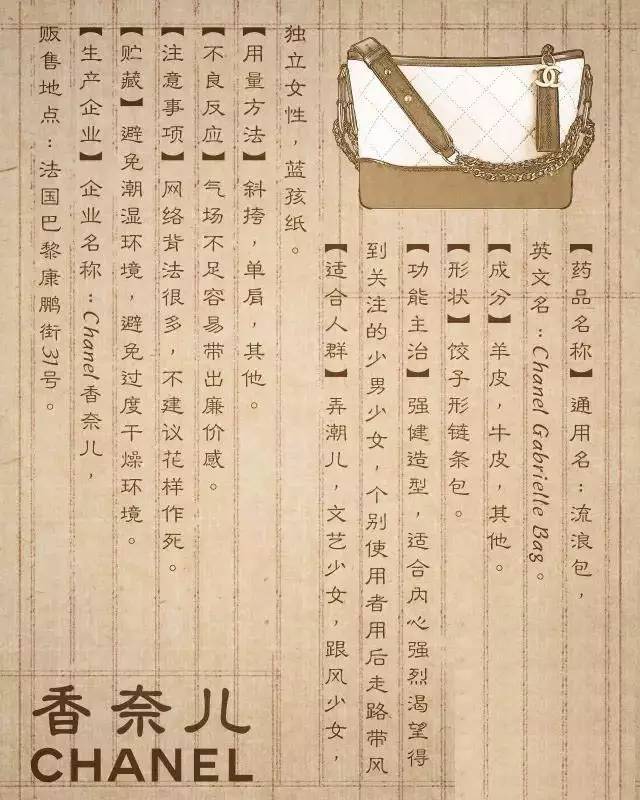 【药品名称】通用名：流浪包，
英文名：Chanel Gabrielle Bag。
【成分】羊皮，牛皮，其他。
【形状】饺子形链条包。
【功能主治】强健造型，适合内心强烈渴望得
到关注的少男少女，个别使用者用后走路带风
【适合人群】弄潮儿，文艺少女，跟风少女，
独立女性，蓝孩纸。
【用量方法】斜挎，单肩，其他。
【不良反应】气场不足容易带出廉价感。
【注意事项】网络背法很多，不建议花样作死。
【贮藏】避免潮湿环境，避免过度干燥环境。
【生产企业】企业名称：Chanel香奈儿，
贩售地点：法国巴黎康鹏街31号。
香奈儿
CHANEL